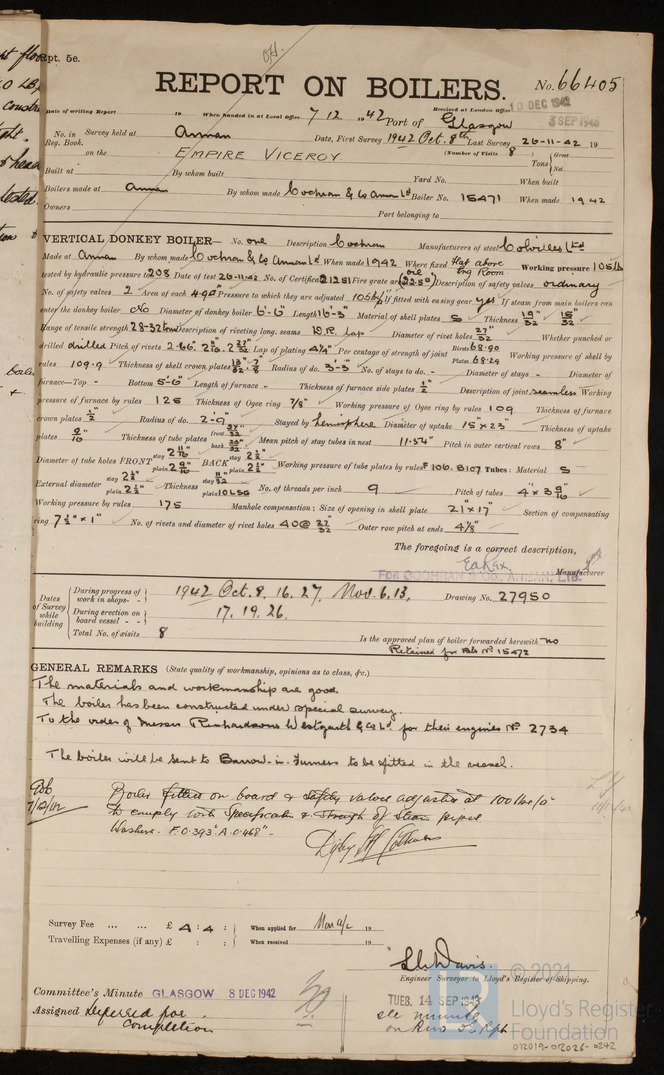 Rpt. 5e.
REPORT ON BOILERS.
No. 66405
Date of writing Report 19 When handed in at Local Office 7 12 1942 Port of Glasgow
Received at London Office 10 DEC 1942
3 SEP 1943
No. in Reg. Book. Survey held at Annan Date, First Survey 1942 Oct. 8th Last Survey 26-11-42 19
on the EMPIRE VICEROY (Number of Visits 8) Tons { Gross Net
Built at By whom built Yard No. When built
Boilers made at Annan By whom made Cochran & Co Annan Ltd Boiler No. 15471 When made 1942
Owners Port belonging to
VERTICAL DONKEY BOILER— No. one Description Cochran Manufacturers of steel Colvilles Ltd
Made at Annan By whom made Cochran & Co Annan Ltd When made 1942 Where fixed Flat above Eng Room Working pressure 105 lb
tested by hydraulic pressure to 208 Date of test 26-11-42 No. of Certificate 21251 Fire grate area oil (22.50) Description of safety valves ordinary
No. of safety valves 2 Area of each 4.90" Pressure to which they are adjusted 105 lb If fitted with easing gear yes If steam from main boilers can
enter the donkey boiler No Diameter of donkey boiler 6'-6" Length 16'-3" Material of shell plates S Thickness 19/32" 15/32"
Range of tensile strength 28-32 tons Description of riveting long. seams D.R. lap Diameter of rivet holes 27/32" Whether punched or
drilled drilled Pitch of rivets 2.66" Lap of plating 4 1/4" Per centage of strength of joint Rivets 68.90 Plates 68.29 Working pressure of shell by
rules 109.9 Thickness of shell crown plates Radius of do. 3'-3" No. of stays to do. - Diameter of stays - Diameter of
furnace—Top - Bottom 5'-6" Length of furnace - Thickness of furnace side plates 1/2" Description of joint seamless Working
pressure of furnace by rules 125 Thickness of Ogee ring 7/8" Working pressure of Ogee ring by rules 109 Thickness of furnace
crown plates 1/2" Radius of do. 2'-9" Stayed by hemisphere Diameter of uptake 15" x 23" Thickness of uptake
plates 9/16" Thickness of tube plates front back Mean pitch of stay tubes in nest 11.54" Pitch in outer vertical rows 8"
Diameter of tube holes FRONT stay 2 11/16" plain 2 9/16" BACK stay 2 1/2" plain 2 1/2" Working pressure of tube plates by rules F 106. B 107 Tubes: Material S
External diameter stay 2 1/2" plain 2 1/2" Thickness stay plain 10 LSG No. of threads per inch 9 Pitch of tubes 4" x 3 9/16"
Working pressure by rules 175 Manhole compensation: Size of opening in shell plate 21" x 17" Section of compensating
ring 7 1/2" x 1" No. of rivets and diameter of rivet holes 40 @ 27/32 Outer row pitch at ends 4 1/8"
The foregoing is a correct description,
FOR COCHRAN & CO., ANNAN, LTD. Manufacturer
Dates of Survey while building
During progress of work in shops - - 1942 Oct. 8. 16. 27. Nov. 6. 13. Drawing No. 27950
During erection on board vessel - - 17. 19. 26.
Total No. of visits 8
Is the approved plan of boiler forwarded herewith no
Retained for Blr No 15472
GENERAL REMARKS (State quality of workmanship, opinions as to class, &c.)
The materials and workmanship are good.
The boiler has been constructed under special survey.
To the order of Messrs Richardsons Westgarth & Co Ld for their engines No 2734
The boiler will be sent to Barrow-in-Furness to be fitted in the vessel.
Boiler fitted on board & safety valves adjusted at 100 lbs/□"
to comply with Specification & strength of steam pipes
Washers. F.0.393" A.0.468"-
Survey Fee ... ... £ 4 : 4 : When applied for 19
Travelling Expenses (if any) £ : : When received 19
Engineer Surveyor to Lloyd's Register of Shipping.
Committee's Minute GLASGOW 8 DEC 1942
Assigned Deferred for Completion
TUES. 14 SEP 1943
see minute
© 2021
Lloyd's Register
Foundation
012019-012026-0242